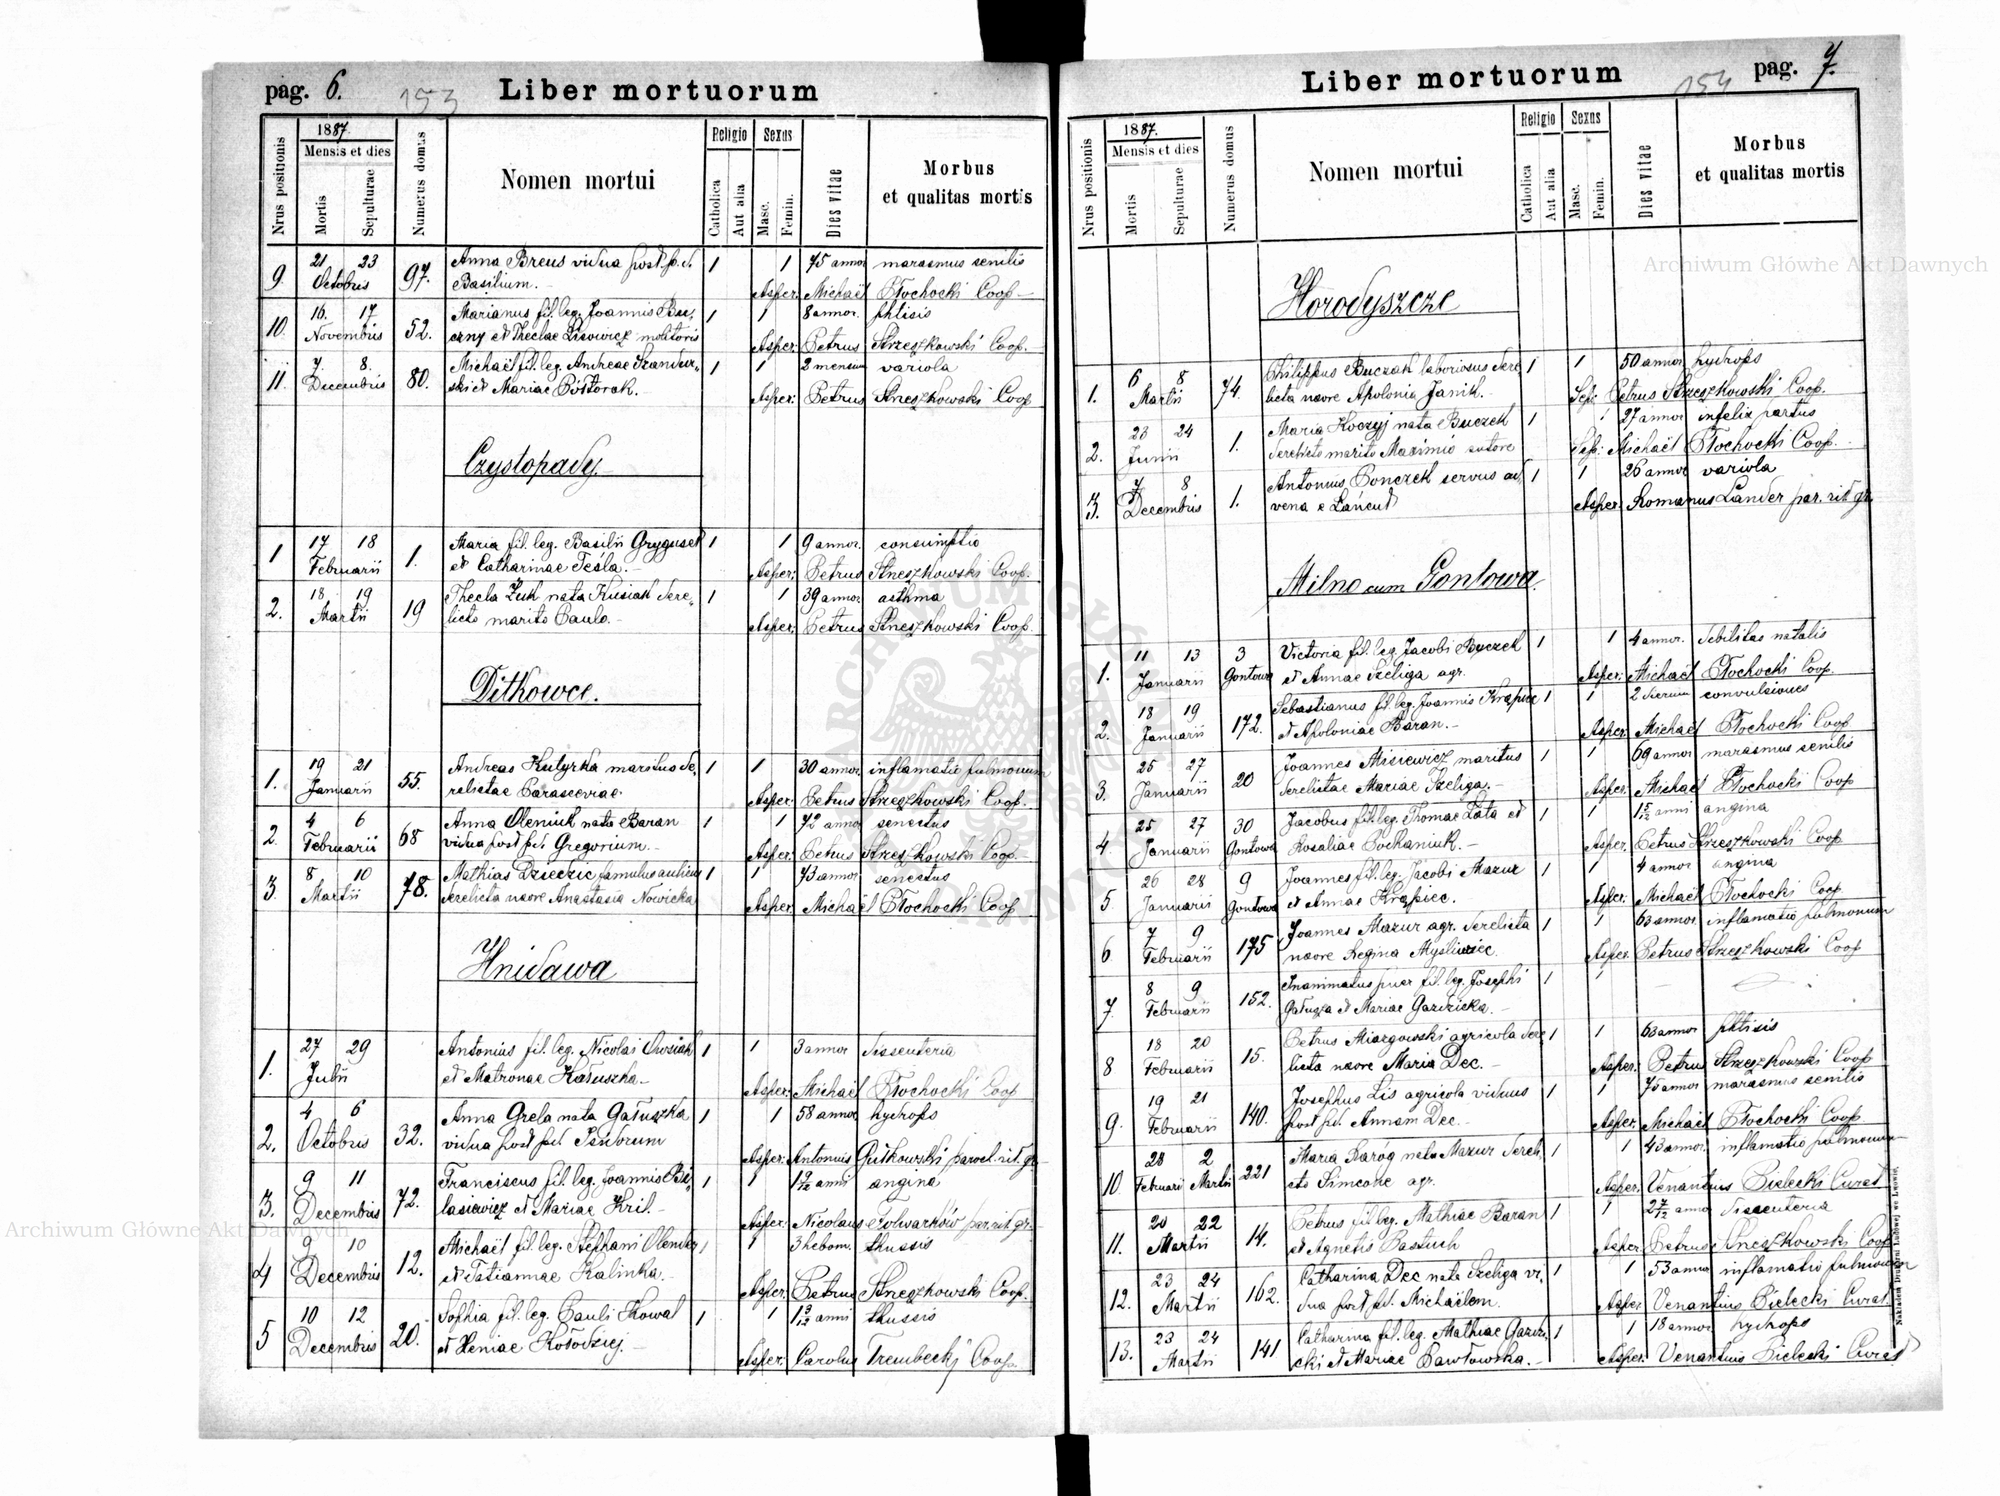 pag. 6.
153
Liber mortuorum
Nrus positionis
1887.
Mensis et dies
Mortis
Sepulturae
Numerus domus
Nomen mortui
Religio
Catholica
Aut alia
Sexus
Masc.
Femin.
Dies vitae
Morbus
et qualitas mortis
21 23 Anna Breus vidua post. p. d. 1 1 75 annor marasmus senilis
9. Octobris 97. Basilium.- Asper: Michaël Płochocki Coop-
16. 17 Marianus fil. leg. Joannis Bu- 1 1 8 annor. phtisis
10. Novembris 52. czny et Theclae Lisowicz molitoris Asper: Petrus Strzeszkowski Coop.-
7. 8. Michaël fil. leg. Andreae Szandur- 1 1 2 mensium variola
11. Decembris 80. ski et Mariae Półtorak.- Asper: Petrus Strzeszkowski Coop
Czystopady.
17 18 Maria fil. leg. Basilii Gryguset 1 1 9 annor. consumptio
1 Februarii 1. et Catharinae Teśla.- Asper: Petrus Strzeszkowski Coop.
18 19 Thecla Żuk nata Kusiak dere- 1 1 39 annor asthma
2. Martii 19 licto marito Paulo.- Asper: Petrus Strzeszkowski Coop.
Ditkowce.
19 21 Andreas Kutyrka maritus de- 1 1 30 annor inflamatio pulmonum
1. Januarii 55. relictae Parasceviae. Asper: Petrus Strzeszkowski Coop.
4 6 Anna Oleniuk nata Baran 1 1 72 annor senectus
2. Februarii 68 vidua post pd. Gregorium.- Asper: Petrus Strzeszkowski Coop.-
8 10 Mathias Dziedzic famulus aulicus 1 1 73 annor senectus
3. Martii 78. derelicta uxore Anastasia Nowicka Asper: Michaël Płochocki Coop
Hnidawa
27 29 Antonius fil. leg. Nicolai Owsiak 1 1 3 annor dissenteria
1. Julii et Matronae Kałuszka- Asper: Michaël Płochocki Coop
4 6 Anna Grela nata Gałuszka 1 1 58 annor hydrops
2. Octobris 32. vidua post pd. Isidorum Asper: Antonius Gutkowski paroch. rit. gr.
9 11 Franciscus fil. leg. Joannis Bi- 1 1 1 9/12 anni angina
3. Decembris 72. lasiewicz et Mariae Kril.- Asper: Nicolaus Folwarków par. rit. gr.
9 10 Michaël fil. leg. Stephani Olender 1 1 3 hebom. thussis
4 Decembris 12. et Tatiannae Kalinka.- Asper: Petrus Strzeszkowski Coop.
10 12 Sophia fil. leg. Pauli Kowal 1 1 1 9/12 anni thussis
5 Decembris 20. et Xeniae Kołodziej.- Asper: Carolus Trembecki Coop.
Liber mortuorum
154
pag. 7.
Nrus positionis
1887.
Mensis et dies
Mortis
Sepulturae
Numerus domus
Nomen mortui
Religio
Catholica
Aut alia
Sexus
Masc.
Femin.
Dies vitae
Morbus
et qualitas mortis
Horodyszcze
6 8 Philippus Buczak laboriosus dere 1 1 50 annor hydrops
1. Martii 74. licta uxore Apolonia Janik.- Sep: Petrus Strzeszkowski Coop.
23 24 Maria Koczyj nata Buczek 1 1 27 annor infelix partus
2. Junii 1. derelicto marito Maximio sutore Sep: Michaël Płochocki Coop.-
7 8 Antonius Bonczek servus ad, 1 1 26 annor variola
3. Decembris 1. vena e Łańcut Asper: Romanus Lander par. rit. gr.
Milno cum Gontowa.
11 13 3 Victoria fil. leg. Jacobi Buczek 1 1 4 annor. debilitas natalis
1. Januarii Gontowa et Annae Szeliga agr. Asper: Michaël Płochocki Coop.
18 19 Sebastianus fil. leg. Joannis Krąpiec 1 1 2 dierum convulsiones
2. Januarii 172. et Apoloniae Baran.- Asper: Michaël Płochocki Coop
25 27 Joannes Misiewicz maritus 1 1 69 annor marasmus senilis
3. Januarii 20 derelictae Mariae Szeliga.- Asper: Michaël Płochocki Coop
25 27 30 Jacobus fil. leg. Thomae Łata et 1 1 1 5/12 anni angina
4 Januarii Gontowa Rosaliae Pochaniuk.- Asper. Petrus Strzeszkowski Coop
26 28 9 Joannes fil. leg. Jacobi Mazur 1 1 4 annor angina
5 Januarii Gontowa et Annae Krąpiec. Asper: Michaël Płochocki Coop
7 9 Joannes Mazur agr. derelicta 1 1 63 annor. inflamatio pulmonum
6 Februarii 175 uxore Regina Myśliwiec. Asper: Petrus Strzeszkowski Coop
8 9 Inanimatus puer fil. leg. Josephi 1 1
7. Februarii 152. Gałuszka et Mariae Gazdzicka.-
18 20 Petrus Miazgowski agricola dere 1 1 63 annor phtisis
8 Februarii 15. licta uxore Maria Dec.- Asper: Petrus Strzeszkowski Coop
19 21 Josephus Lis agricola viduus 1 1 75 annor marasmus senilis
9. Februarii 140. post pd. Annam Dec.- Asper: Michaël Płochocki Coop.
28 2 Maria Karóg nata Mazur derel- 1 1 43 annor. inflamatio pulmonum
10. Februarii Martii 221 cto Simeone agr. Asper: Venantius Bielecki Curat
20 22 Petrus fil. leg. Mathiae Baran 1 1 2 7/12 annor dissenteria
11. Martii 14. et Agnetis Pastuch Asper: Petrus Strzeszkowski Coop
23 24 Catharina Dec nata Szeliga vi- 1 1 53 annor inflamatio pulmonum
12. Martii 162. dua post pd. Michaëlem. Asper Venantius Bielecki Curat.
23 24 Catharina fil. leg. Mathiae Gazdzi- 1 1 18 annor hydrops
13. Martii 141 cki et Mariae Pawłowska.- Asper: Venantius Bielecki Curat
Nakładem Drukarni Ludowej we Lwowie.
Archiwum Główne Akt Dawnych
Archiwum Główne Akt Dawnych
ARCHIWUM GŁÓWNE AKT DAWNYCH